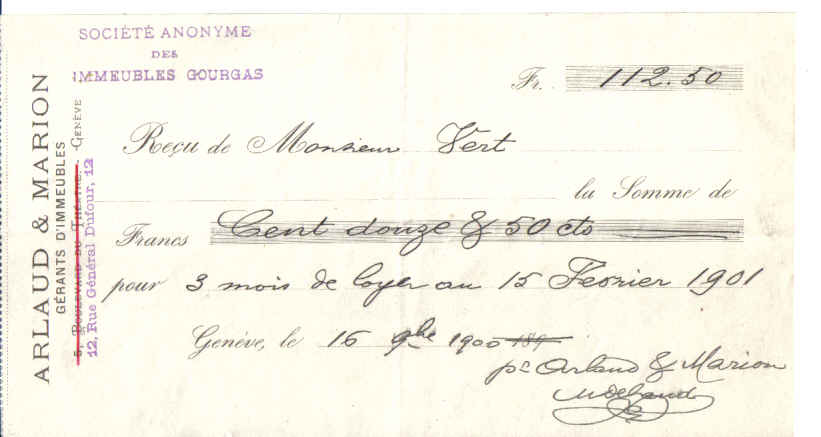 SOCIÉTÉ ANONYME
DES
IMMEUBLES GOURGAS
ARLAUD & MARION
GÉRANTS D'IMMEUBLES
5, BOULEVARD DU THÉATRE. - GENÈVE
12, Rue Général Dufour, 12
Fr. 112.50
Reçu de Monsieur Vert
la Somme de
Francs Cent douze & 50 cts
pour 3 mois de loyer au 15 Fevrier 1901
Genève, le 16 9bre 1900 189
pr Arlaud & Marion